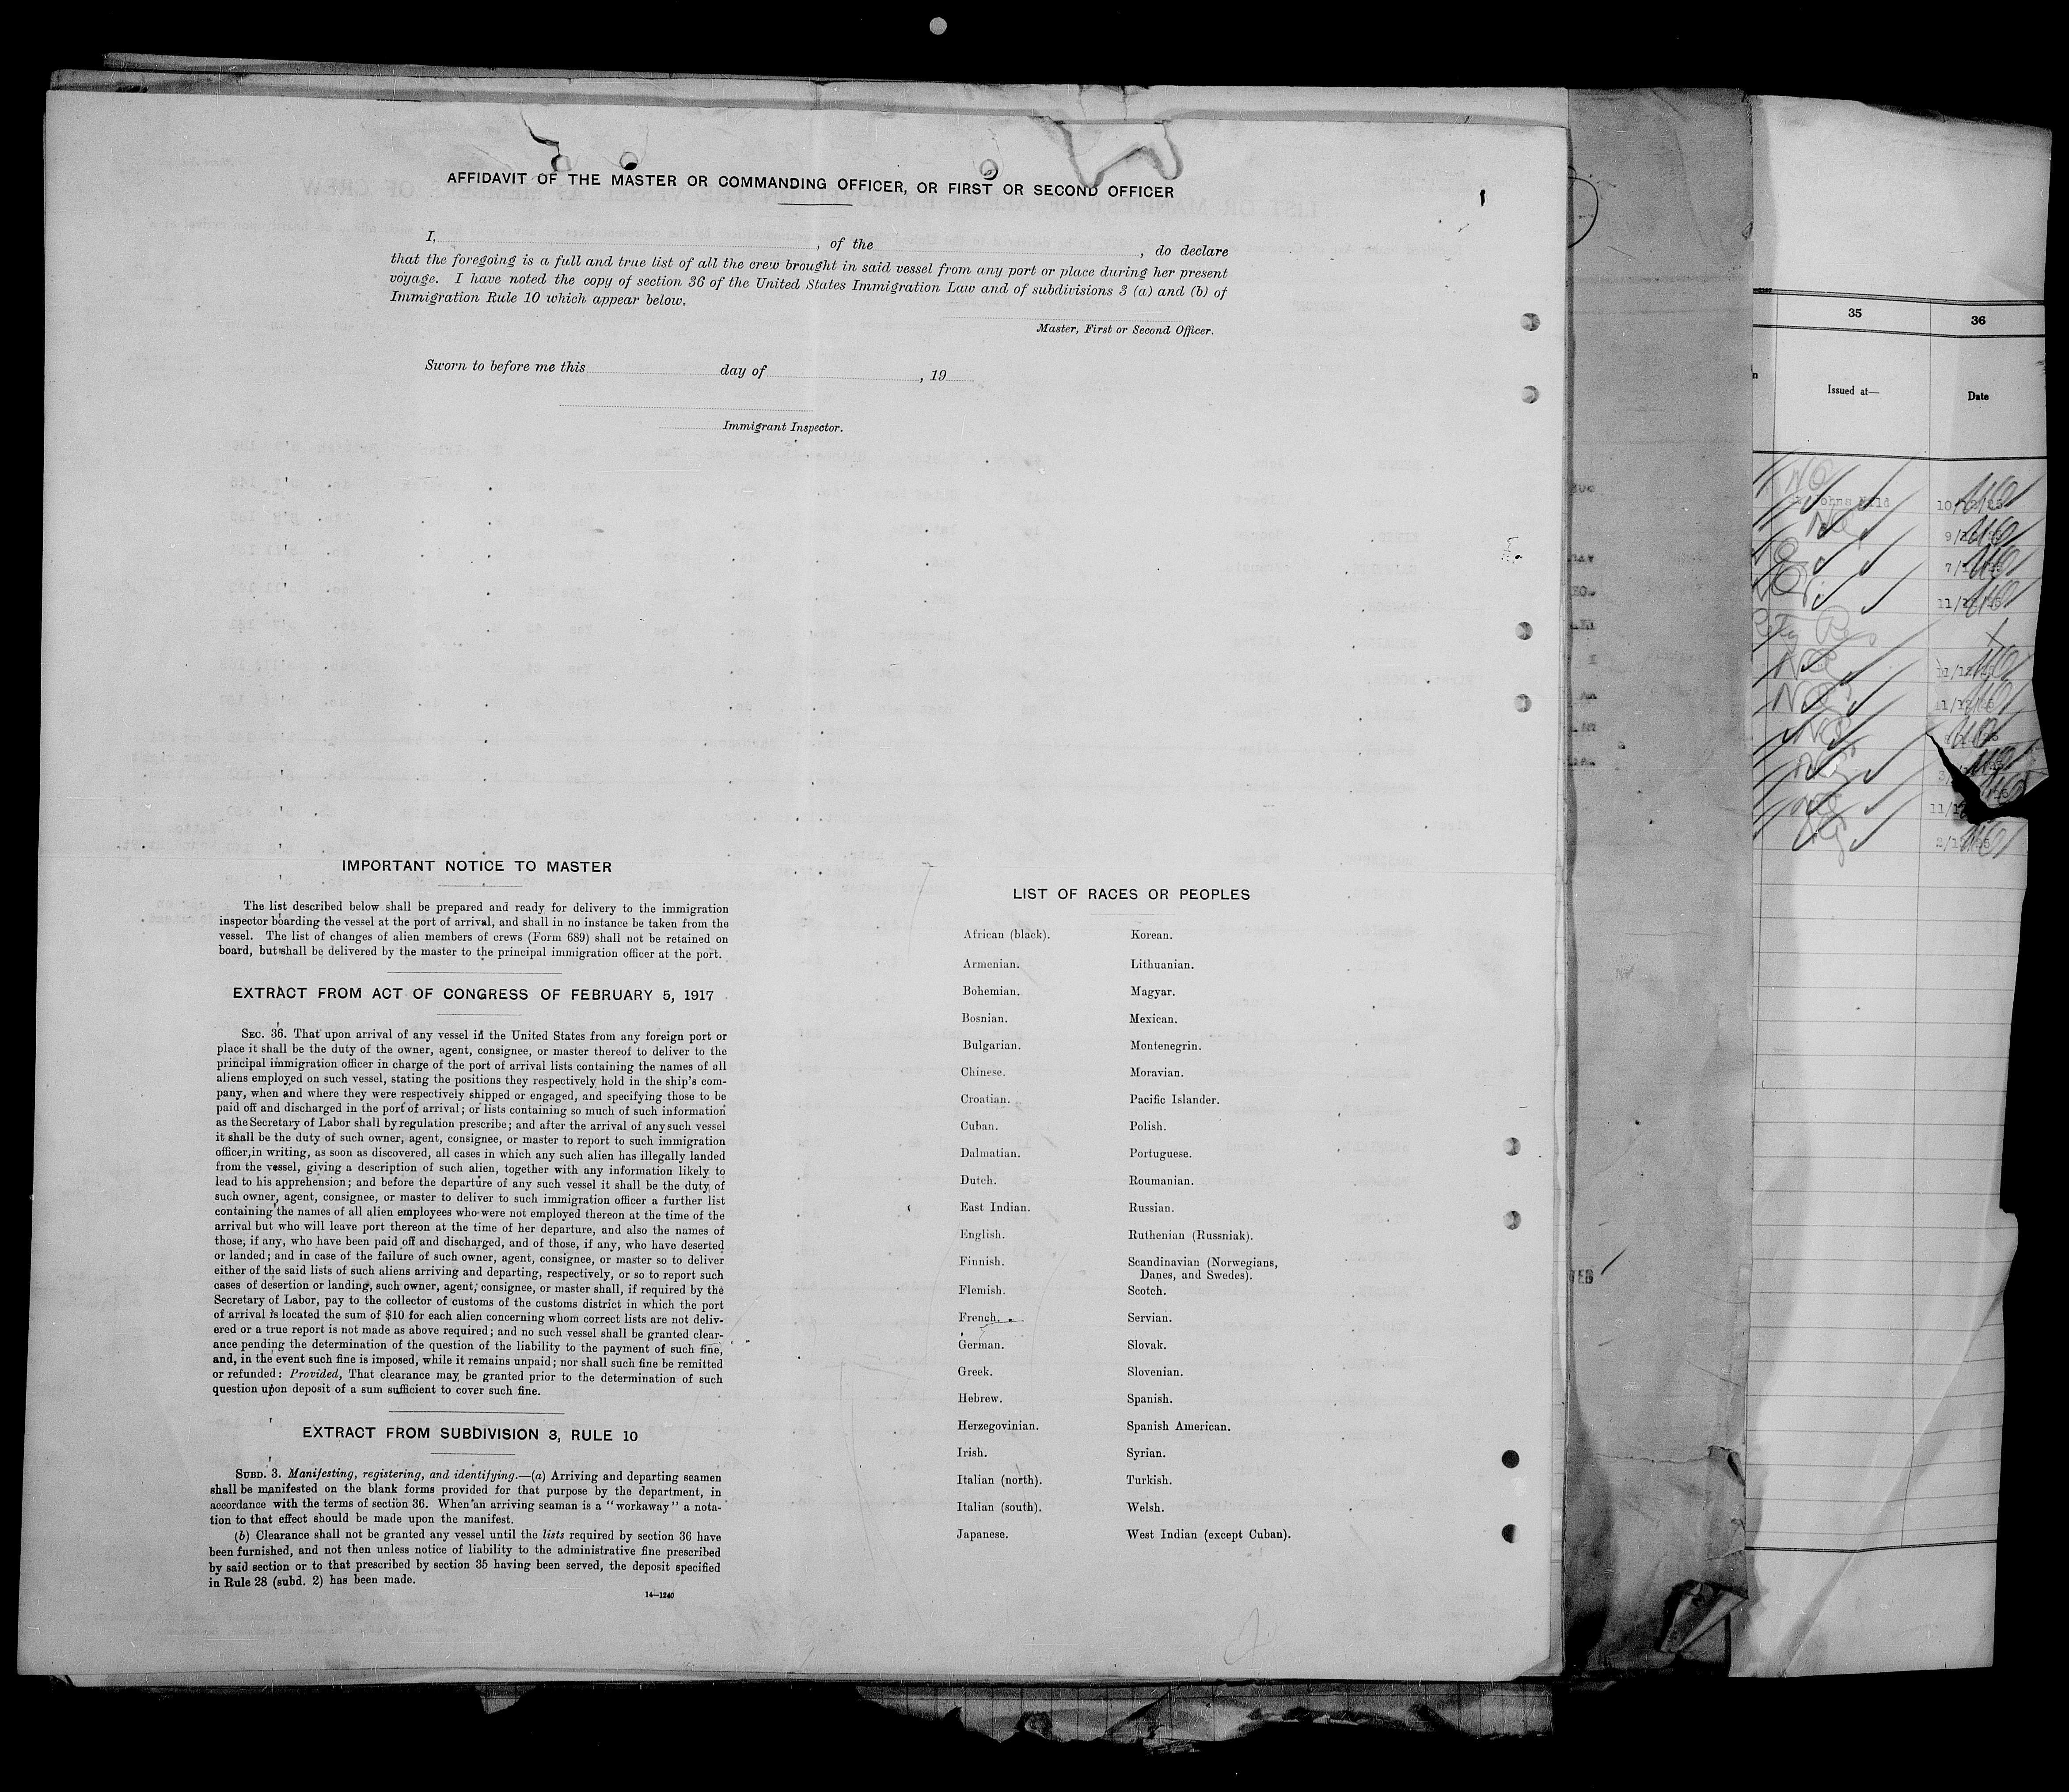 AFFIDAVIT OF THE MASTER OR COMMANDING OFFICER, OR FIRST OR SECOND OFFICER
I, , of the , do declare
that the foregoing is a full and true list of all the crew brought in said vessel from any port or place during her present
voyage. I have noted the copy of section 36 of the United States Immigration Law and of subdivisions 3 (a) and (b) of
Immigration Rule 10 which appear below.
Master, First or Second Officer.
Sworn to before me this day of , 19
Immigrant Inspector.
IMPORTANT NOTICE TO MASTER
The list described below shall be prepared and ready for delivery to the immigration
inspector boarding the vessel at the port of arrival, and shall in no instance be taken from the
vessel. The list of changes of alien members of crews (Form 689) shall not be retained on
board, but shall be delivered by the master to the principal immigration officer at the port.
EXTRACT FROM ACT OF CONGRESS OF FEBRUARY 5, 1917
SEC. 36. That upon arrival of any vessel in the United States from any foreign port or
place it shall be the duty of the owner, agent, consignee, or master thereof to deliver to the
principal immigration officer in charge of the port of arrival lists containing the names of all
aliens employed on such vessel, stating the positions they respectively hold in the ship's com-
pany, when and where they were respectively shipped or engaged, and specifying those to be
paid off and discharged in the port of arrival; or lists containing so much of such information
as the Secretary of Labor shall by regulation prescribe; and after the arrival of any such vessel
it shall be the duty of such owner, agent, consignee, or master to report to such immigration
officer, in writing, as soon as discovered, all cases in which any such alien has illegally landed
from the vessel, giving a description of such alien, together with any information likely to
lead to his apprehension; and before the departure of any such vessel it shall be the duty of
such owner, agent, consignee, or master to deliver to such immigration officer a further list
containing the names of all alien employees who were not employed thereon at the time of the
arrival but who will leave port thereon at the time of her departure, and also the names of
those, if any, who have been paid off and discharged, and of those, if any, who have deserted
or landed; and in case of the failure of such owner, agent, consignee, or master so to deliver
either of the said lists of such aliens arriving and departing, respectively, or so to report such
cases of desertion or landing, such owner, agent, consignee, or master shall, if required by the
Secretary of Labor, pay to the collector of customs of the customs district in which the port
of arrival is located the sum of $10 for each alien concerning whom correct lists are not deliv-
ered or a true report is not made as above required; and no such vessel shall be granted clear-
ance pending the determination of the question of the liability to the payment of such fine,
and, in the event such fine is imposed, while it remains unpaid; nor shall such fine be remitted
or refunded: Provided, That clearance may be granted prior to the determination of such
question upon deposit of a sum sufficient to cover such fine.
EXTRACT FROM SUBDIVISION 3, RULE 10
SUBD. 3. Manifesting, registering, and identifying.—(a) Arriving and departing seamen
shall be manifested on the blank forms provided for that purpose by the department, in
accordance with the terms of section 36. When an arriving seaman is a "workaway" a nota-
tion to that effect should be made upon the manifest.
(b) Clearance shall not be granted any vessel until the lists required by section 36 have
been furnished, and not then unless notice of liability to the administrative fine prescribed
by said section or to that prescribed by section 35 having been served, the deposit specified
in Rule 28 (subd. 2) has been made.
14—1240
LIST OF RACES OR PEOPLES
African (black).
Armenian.
Bohemian.
Bosnian.
Bulgarian.
Chinese.
Croatian.
Cuban.
Dalmatian.
Dutch.
East Indian.
English.
Finnish.
Flemish.
French.
German.
Greek.
Hebrew.
Herzegovinian.
Irish.
Italian (north).
Italian (south).
Japanese.
Korean.
Lithuanian.
Magyar.
Mexican.
Montenegrin.
Moravian.
Pacific Islander.
Polish.
Portuguese.
Roumanian.
Russian.
Ruthenian (Russniak).
Scandinavian (Norwegians,
Danes, and Swedes).
Scotch.
Servian.
Slovak.
Slovenian.
Spanish.
Spanish American.
Syrian.
Turkish.
Welsh.
West Indian (except Cuban).
35
36
Issued at—
Date